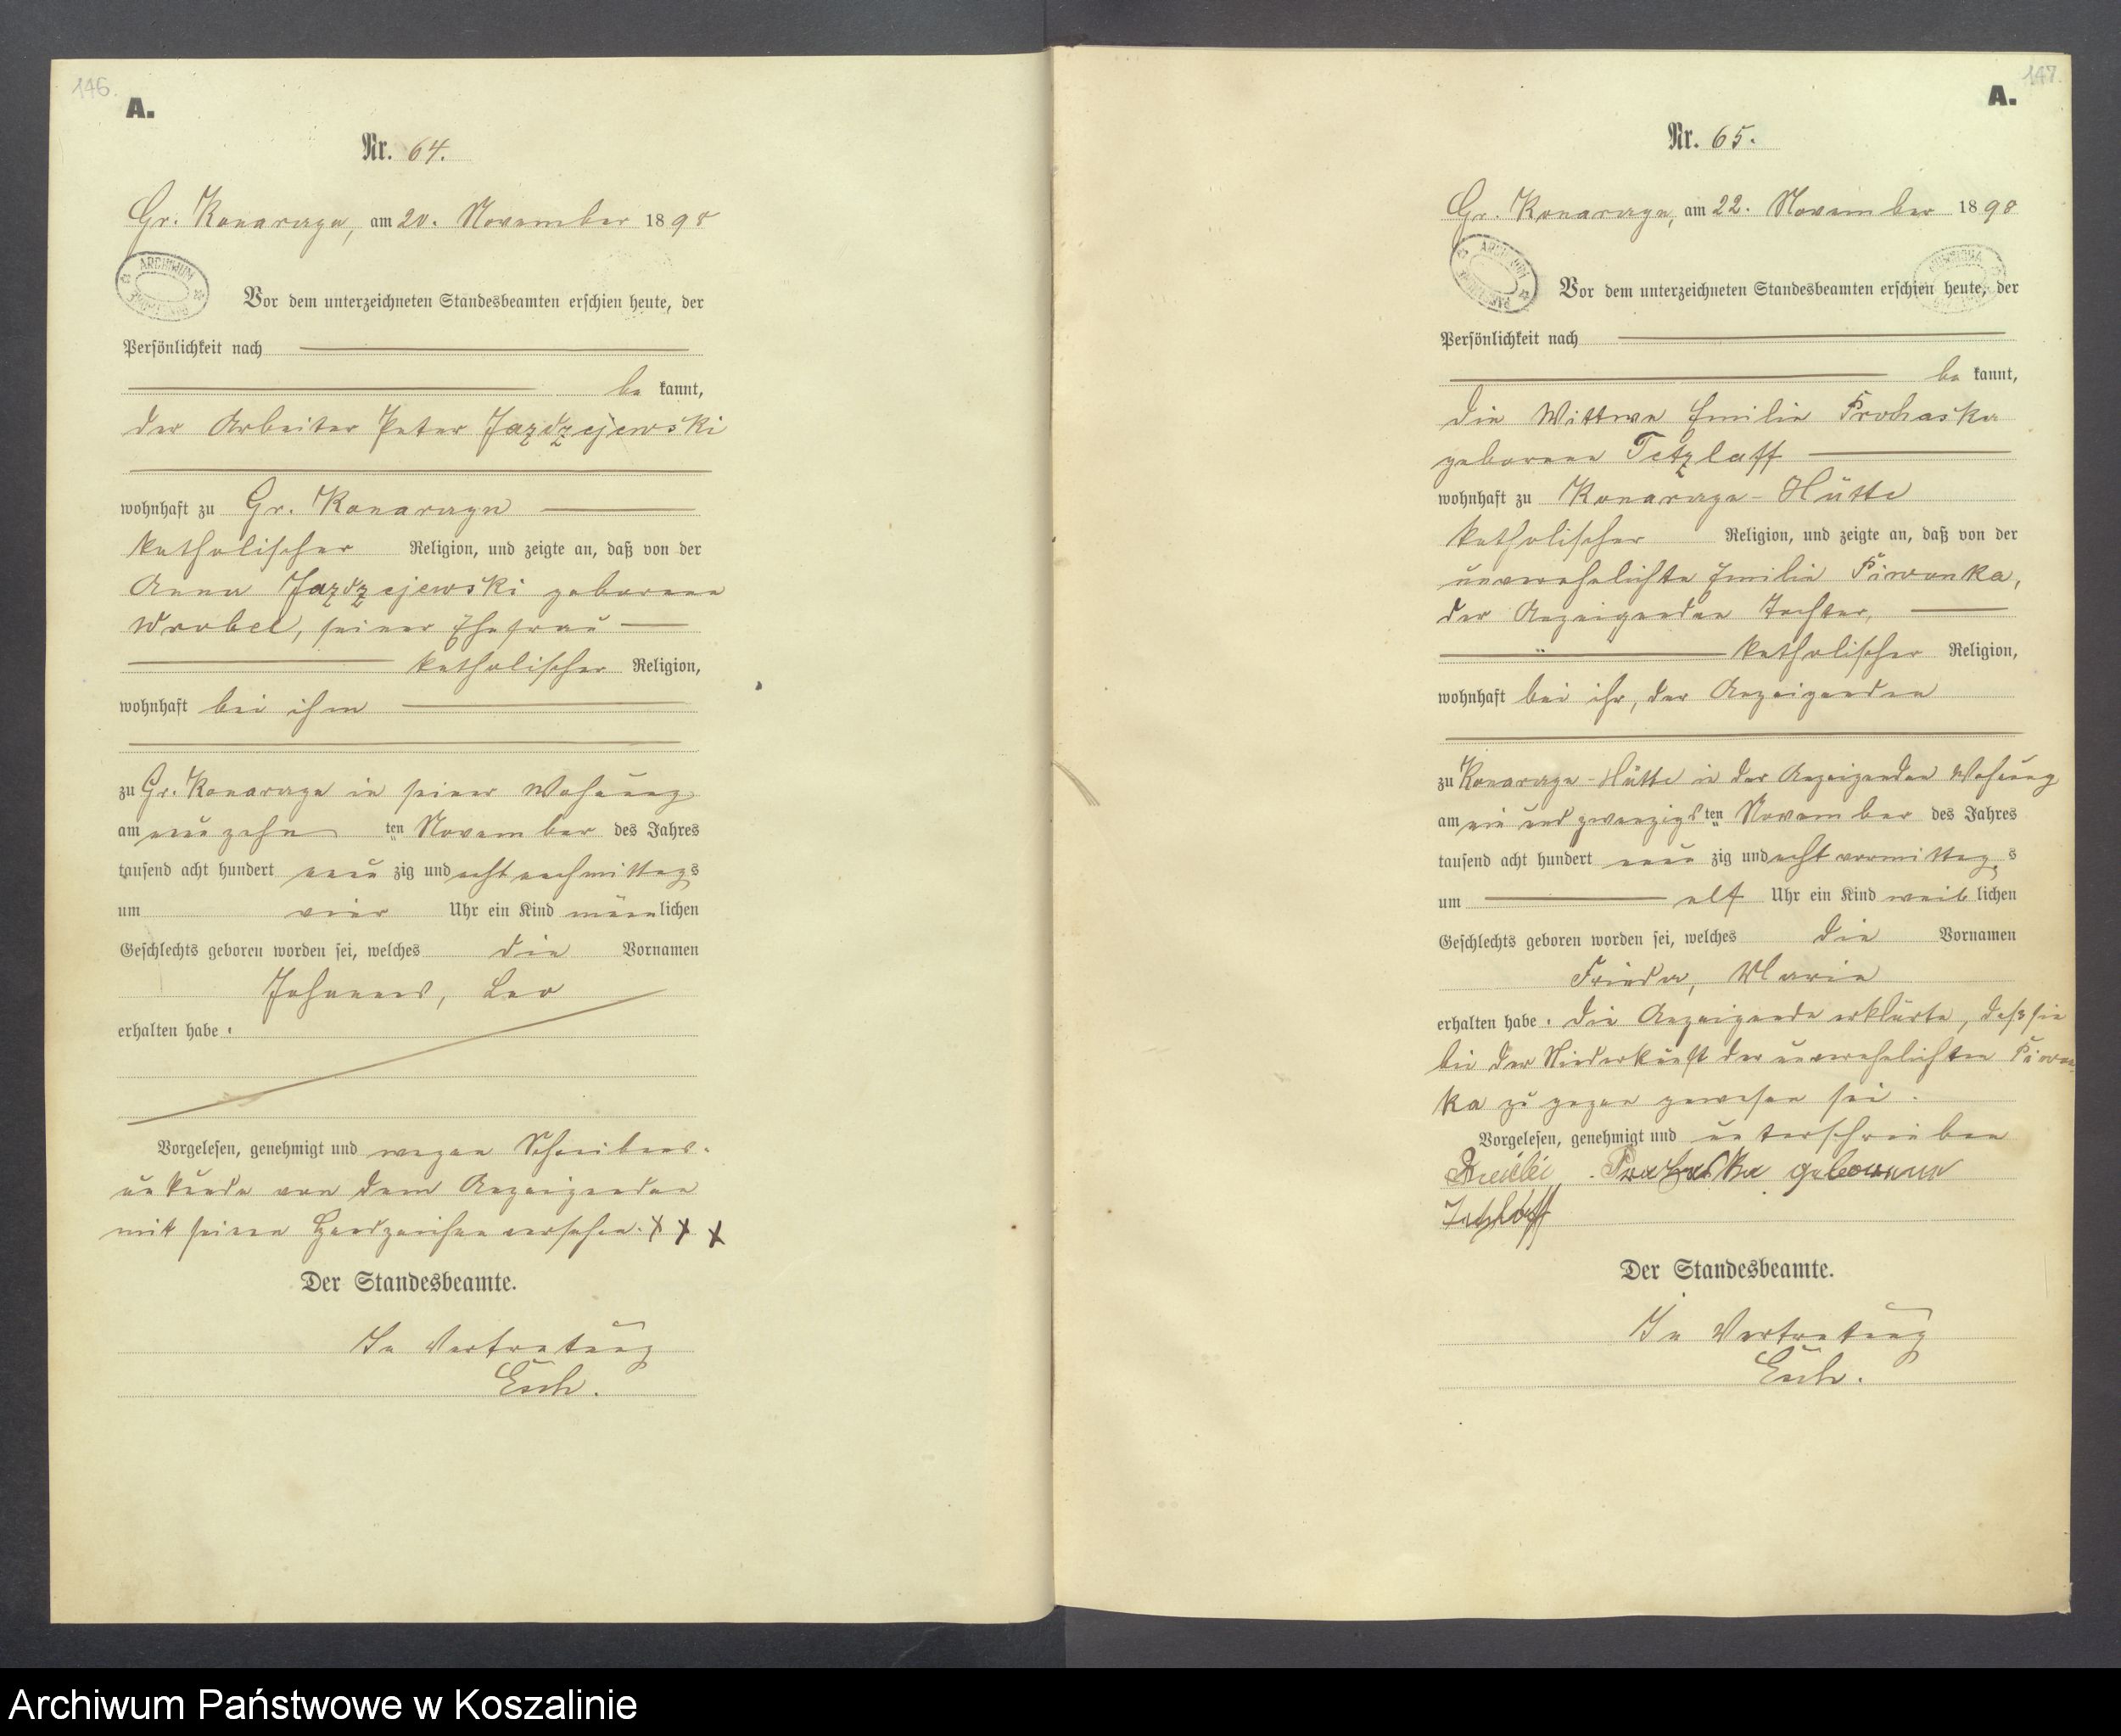 146.
A.
Nr. 64.
Gr. Konarczyn, am 20. November 1898
ARCHIWUM
Vor dem unterzeichneten Standesbeamten erschien heute, der
Persönlichkeit nach
be kannt,
der Arbeiter Peter Jazdzejewski
wohnhaft zu Gr. Konarczyn
katholischer Religion, und zeigte an, daß von der
Anna Jazdzejewski geborene
Wrobel, seiner Ehefrau
katholischer Religion,
wohnhaft bei ihm
zu Gr. Konarczyn in seiner Wohnung
am neunzehn ten November des Jahres
tausend acht hundert neun zig und acht nachmittags
um vier Uhr ein Kind männlichen
Geschlechts geboren worden sei, welches die Vornamen
Johannes, Leo
erhalten habe.
Vorgelesen, genehmigt und wegen Schreibens-
unkunde von dem Anzeigenden
mit seinen Handzeichen versehen. X X X
Der Standesbeamte.
In Vertretung
147.
A.
Nr. 65.
Gr. Konarczyn, am 22. November 1898
ARCHIWUM
Vor dem unterzeichneten Standesbeamten erschien heute, der
Persönlichkeit nach
be kannt,
die Wittwe Emilie Prochaska
geborene Tetzlaff
wohnhaft zu Konarczyn-Hütte
katholischer Religion, und zeigte an, daß von der
unverehelichte Emilie Piwonka,
der Anzeigenden Tochter,
katholischer Religion,
wohnhaft bei ihr, der Anzeigenden
zu Konarczyn-Hütte in der Anzeigenden Wohnung
am ein und zwanzigsten November des Jahres
tausend acht hundert neun zig und acht vormittags
um elf Uhr ein Kind weiblichen
Geschlechts geboren worden sei, welches die Vornamen
Frieda, Marie
erhalten habe. Die Anzeigende erklärte, daß sie
bei der Niederkunft der unverehelichten Piwon-
ka zugegen gewesen sei.
Vorgelesen, genehmigt und unterschrieben
Prochaska geborene
Tetzlaff
Der Standesbeamte.
In Vertretung
Archiwum Państwowe w Koszalinie